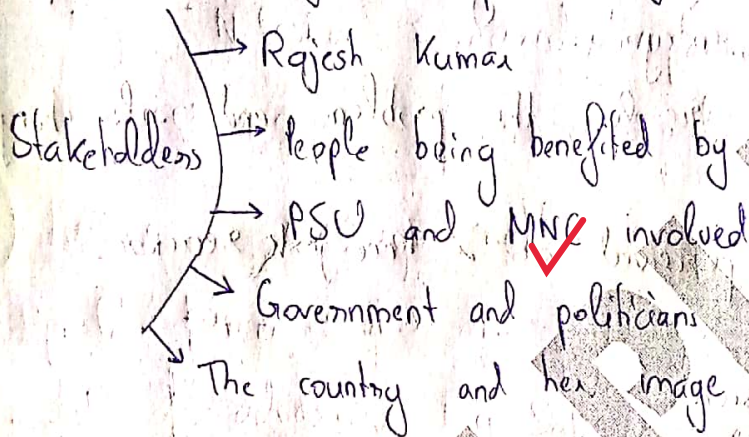 Rajesh Kumar
Stakeholders
People being benefited by
PSU and MNC involved
Government and politicians
The country and her image